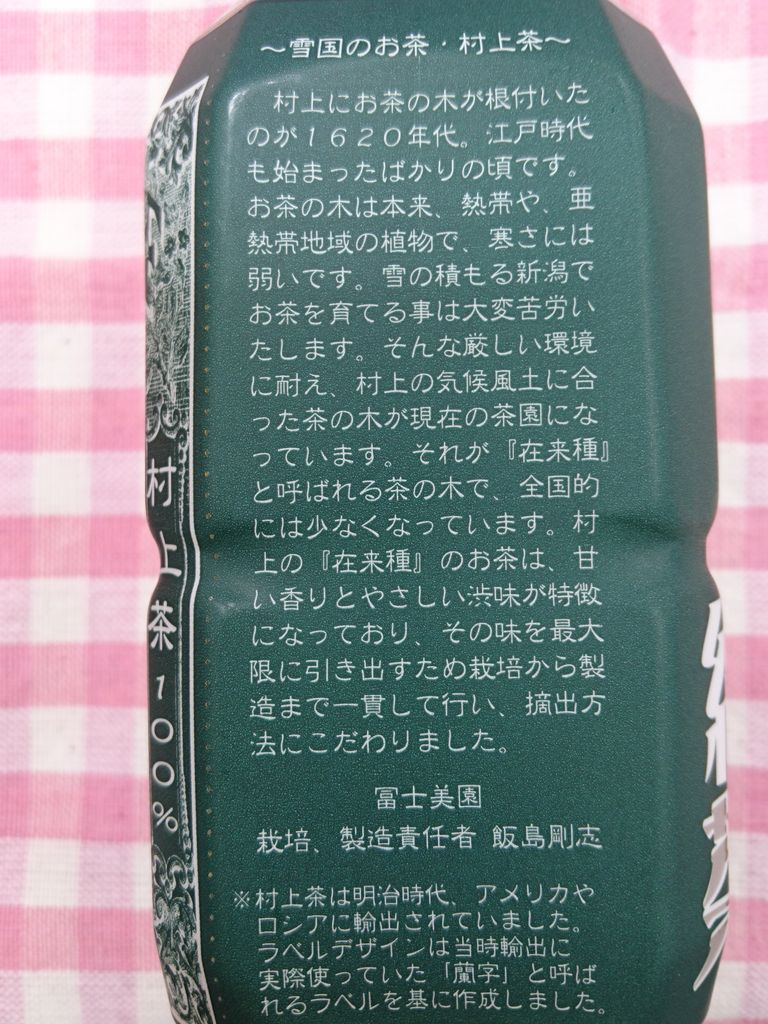 ～雪国のお茶・村上茶～
村上にお茶の木が根付いた
のが１６２０年代。江戸時代
も始まったばかりの頃です。
お茶の木は本来、熱帯や、亜
熱帯地域の植物で、寒さには
弱いです。雪の積もる新潟で
お茶を育てる事は大変苦労い
たします。そんな厳しい環境
に耐え、村上の気候風土に合
った茶の木が現在の茶園にな
っています。それが『在来種』
と呼ばれる茶の木で、全国的
には少なくなっています。村
上の『在来種』のお茶は、甘
い香りとやさしい渋味が特徴
になっており、その味を最大
限に引き出すため栽培から製
造まで一貫して行い、摘出方
法にこだわりました。
冨士美園
栽培、製造責任者 飯島剛志
※村上茶は明治時代、アメリカや
ロシアに輸出されていました。
ラベルデザインは当時輸出に
実際使っていた「蘭字」と呼ば
れるラベルを基に作成しました。
村上茶１００％